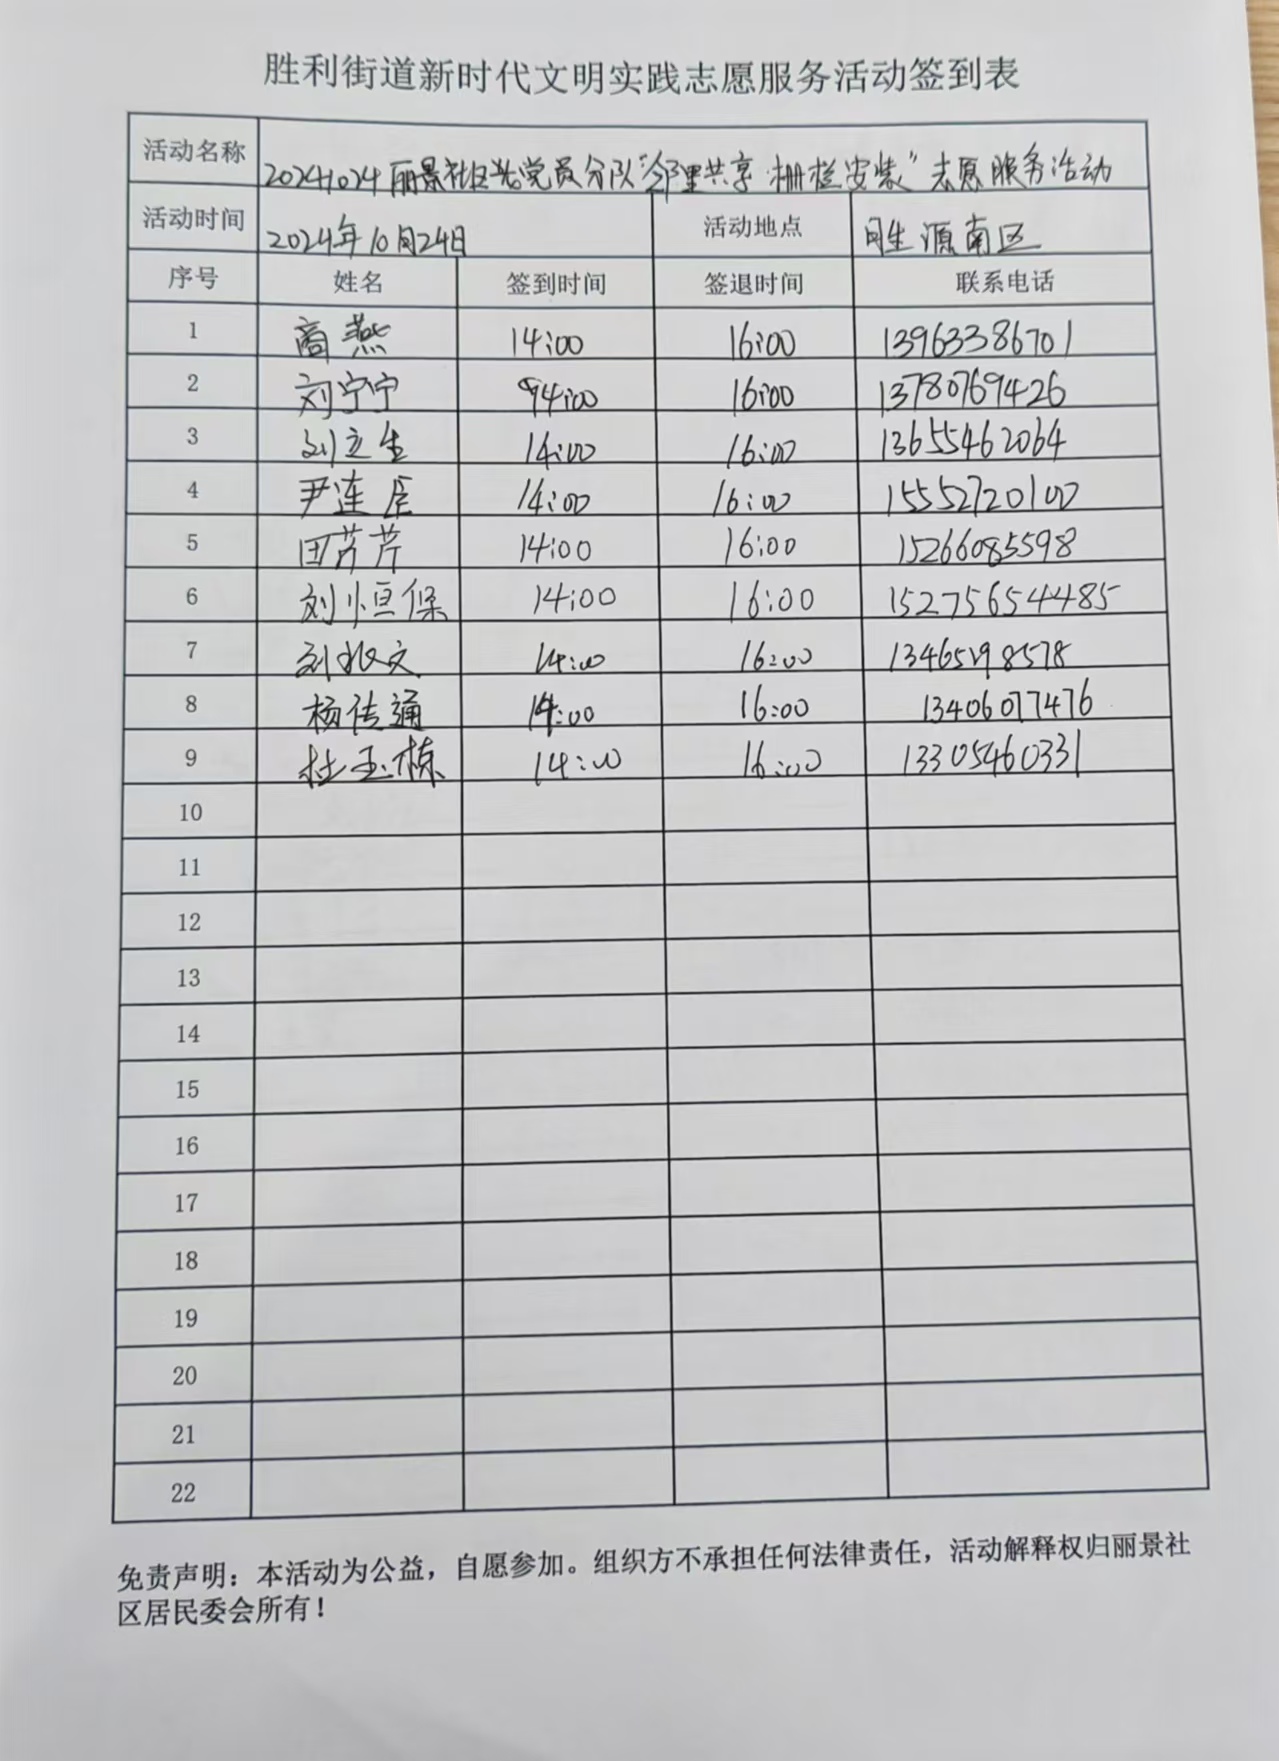 胜利街道新时代文明实践志愿服务活动签到表
活动名称 20241024丽景社区党员分队"邻里共享·栅栏安装"志愿服务活动
活动时间 2024年10月24日 活动地点 胜源南区
序号 姓名 签到时间 签退时间 联系电话
1 商燕 14:00 16:00 13963386701
2 刘宁宁 14:00 16:00 13780769426
3 刘立生 14:00 16:00 13655462064
4 尹连 14:00 16:00 15552720100
5 田芳芹 14:00 16:00 15266085598
6 刘恒保 14:00 16:00 152756544485
7 刘文 14:00 16:00 13465198578
8 杨传通 14:00 16:00 13406077476
9 杜玉栋 14:00 16:00 13305460331
10
11
12
13
14
15
16
17
18
19
20
21
22
免责声明：本活动为公益，自愿参加。组织方不承担任何法律责任，活动解释权归丽景社
区居民委会所有！